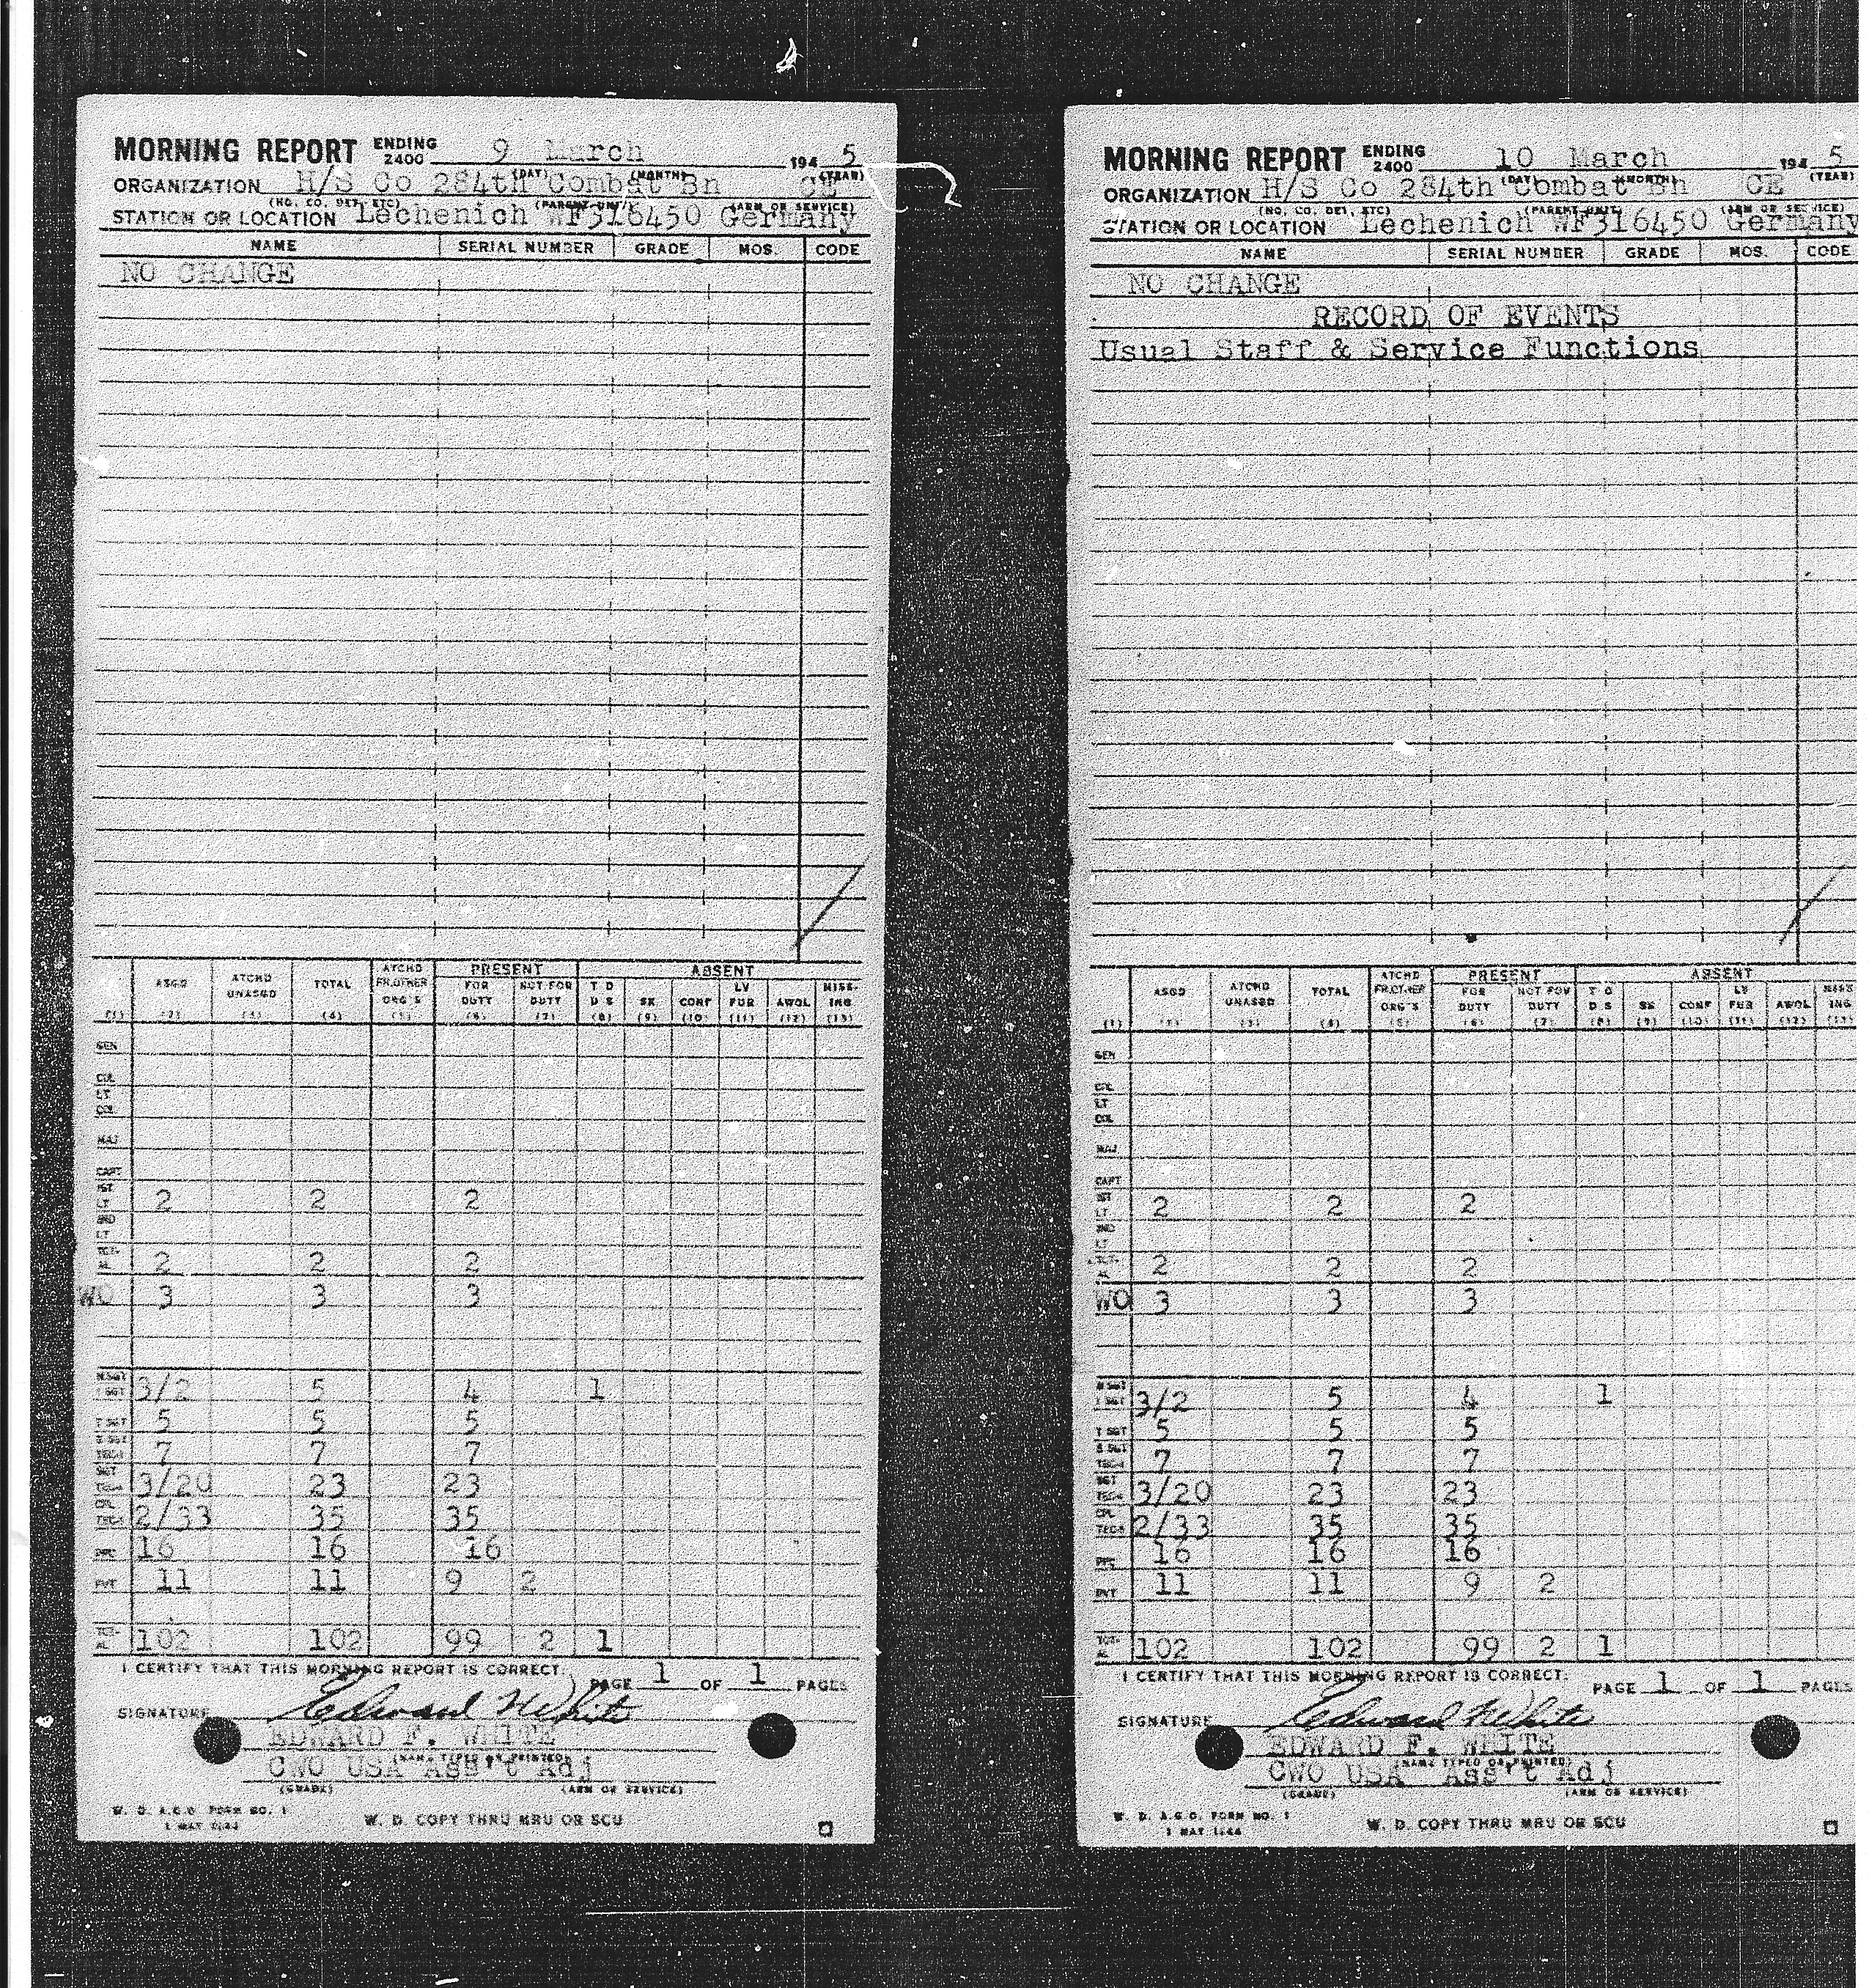 MORNING REPORT ENDING 2400 9 March 194 5
(DAY) (MONTH) (YEAR)
ORGANIZATION H/S Co 284th Combat Bn CE
(NO. CO. DET. ETC) (PARENT UNIT) (ARM OR SERVICE)
STATION OR LOCATION Lechenich WF316450 Germany
NAME SERIAL NUMBER GRADE MOS. CODE
NO CHANGE
PRESENT ABSENT
ASGD ATCHD UNASGD TOTAL ATCHD FR.OTHER ORG'S FOR DUTY NOT FOR DUTY T D D S SK CONF LV FUR AWOL MISS-ING
(1) (2) (3) (4) (5) (6) (7) (8) (9) (10) (11) (12) (13)
GEN
COL
LT COL
MAJ
CAPT
1ST LT 2 2 2
2ND LT
TOT-AL 2 2 2
WO 3 3 3
M SGT 1 SGT 3/2 5 4 1
T SGT 5 5 5
S SGT TEC3 7 7 7
SGT TEC4 3/20 23 23
CPL TEC5 2/33 35 35
PFC 16 16 16
PVT 11 11 9 2
TOT-AL 102 102 99 2 1
I CERTIFY THAT THIS MORNING REPORT IS CORRECT. PAGE 1 OF 1 PAGES
SIGNATURE Edward F White
EDWARD F. WHITE
(NAME TYPED OR PRINTED)
CWO USA Ass't Adj
(GRADE) (ARM OR SERVICE)
W. D. A.G.O. FORM NO. 1
1 MAY 1944 W. D. COPY THRU MRU OR SCU
MORNING REPORT ENDING 2400 10 March 194 5
(DAY) (MONTH) (YEAR)
ORGANIZATION H/S Co 284th Combat Bn CE
(NO. CO. DET. ETC) (PARENT UNIT) (ARM OR SERVICE)
STATION OR LOCATION Lechenich WF316450 Germany
NAME SERIAL NUMBER GRADE MOS. CODE
NO CHANGE
RECORD OF EVENTS
Usual Staff & Service Functions
PRESENT ABSENT
ASGD ATCHD UNASGD TOTAL ATCHD FR.OTHER ORG'S FOR DUTY NOT FOR DUTY T D D S SK CONF LV FUR AWOL MISS ING
(1) (2) (3) (4) (5) (6) (7) (8) (9) (10) (11) (12) (13)
GEN
COL
LT COL
MAJ
CAPT
1ST LT 2 2 2
2ND LT
TOT-AL 2 2 2
WO 3 3 3
M SGT 1 SGT 3/2 5 4 1
T SGT 5 5 5
S SGT TEC3 7 7 7
SGT TEC4 3/20 23 23
CPL TEC5 2/33 35 35
PFC 16 16 16
PVT 11 11 9 2
TOT-AL 102 102 99 2 1
I CERTIFY THAT THIS MORNING REPORT IS CORRECT. PAGE 1 OF 1 PAGES
SIGNATURE Edward F White
EDWARD F. WHITE
(NAME TYPED OR PRINTED)
CWO USA Ass't Adj
(GRADE) (ARM OR SERVICE)
W. D. A.G.O. FORM NO. 1
1 MAY 1944 W. D. COPY THRU MRU OR SCU